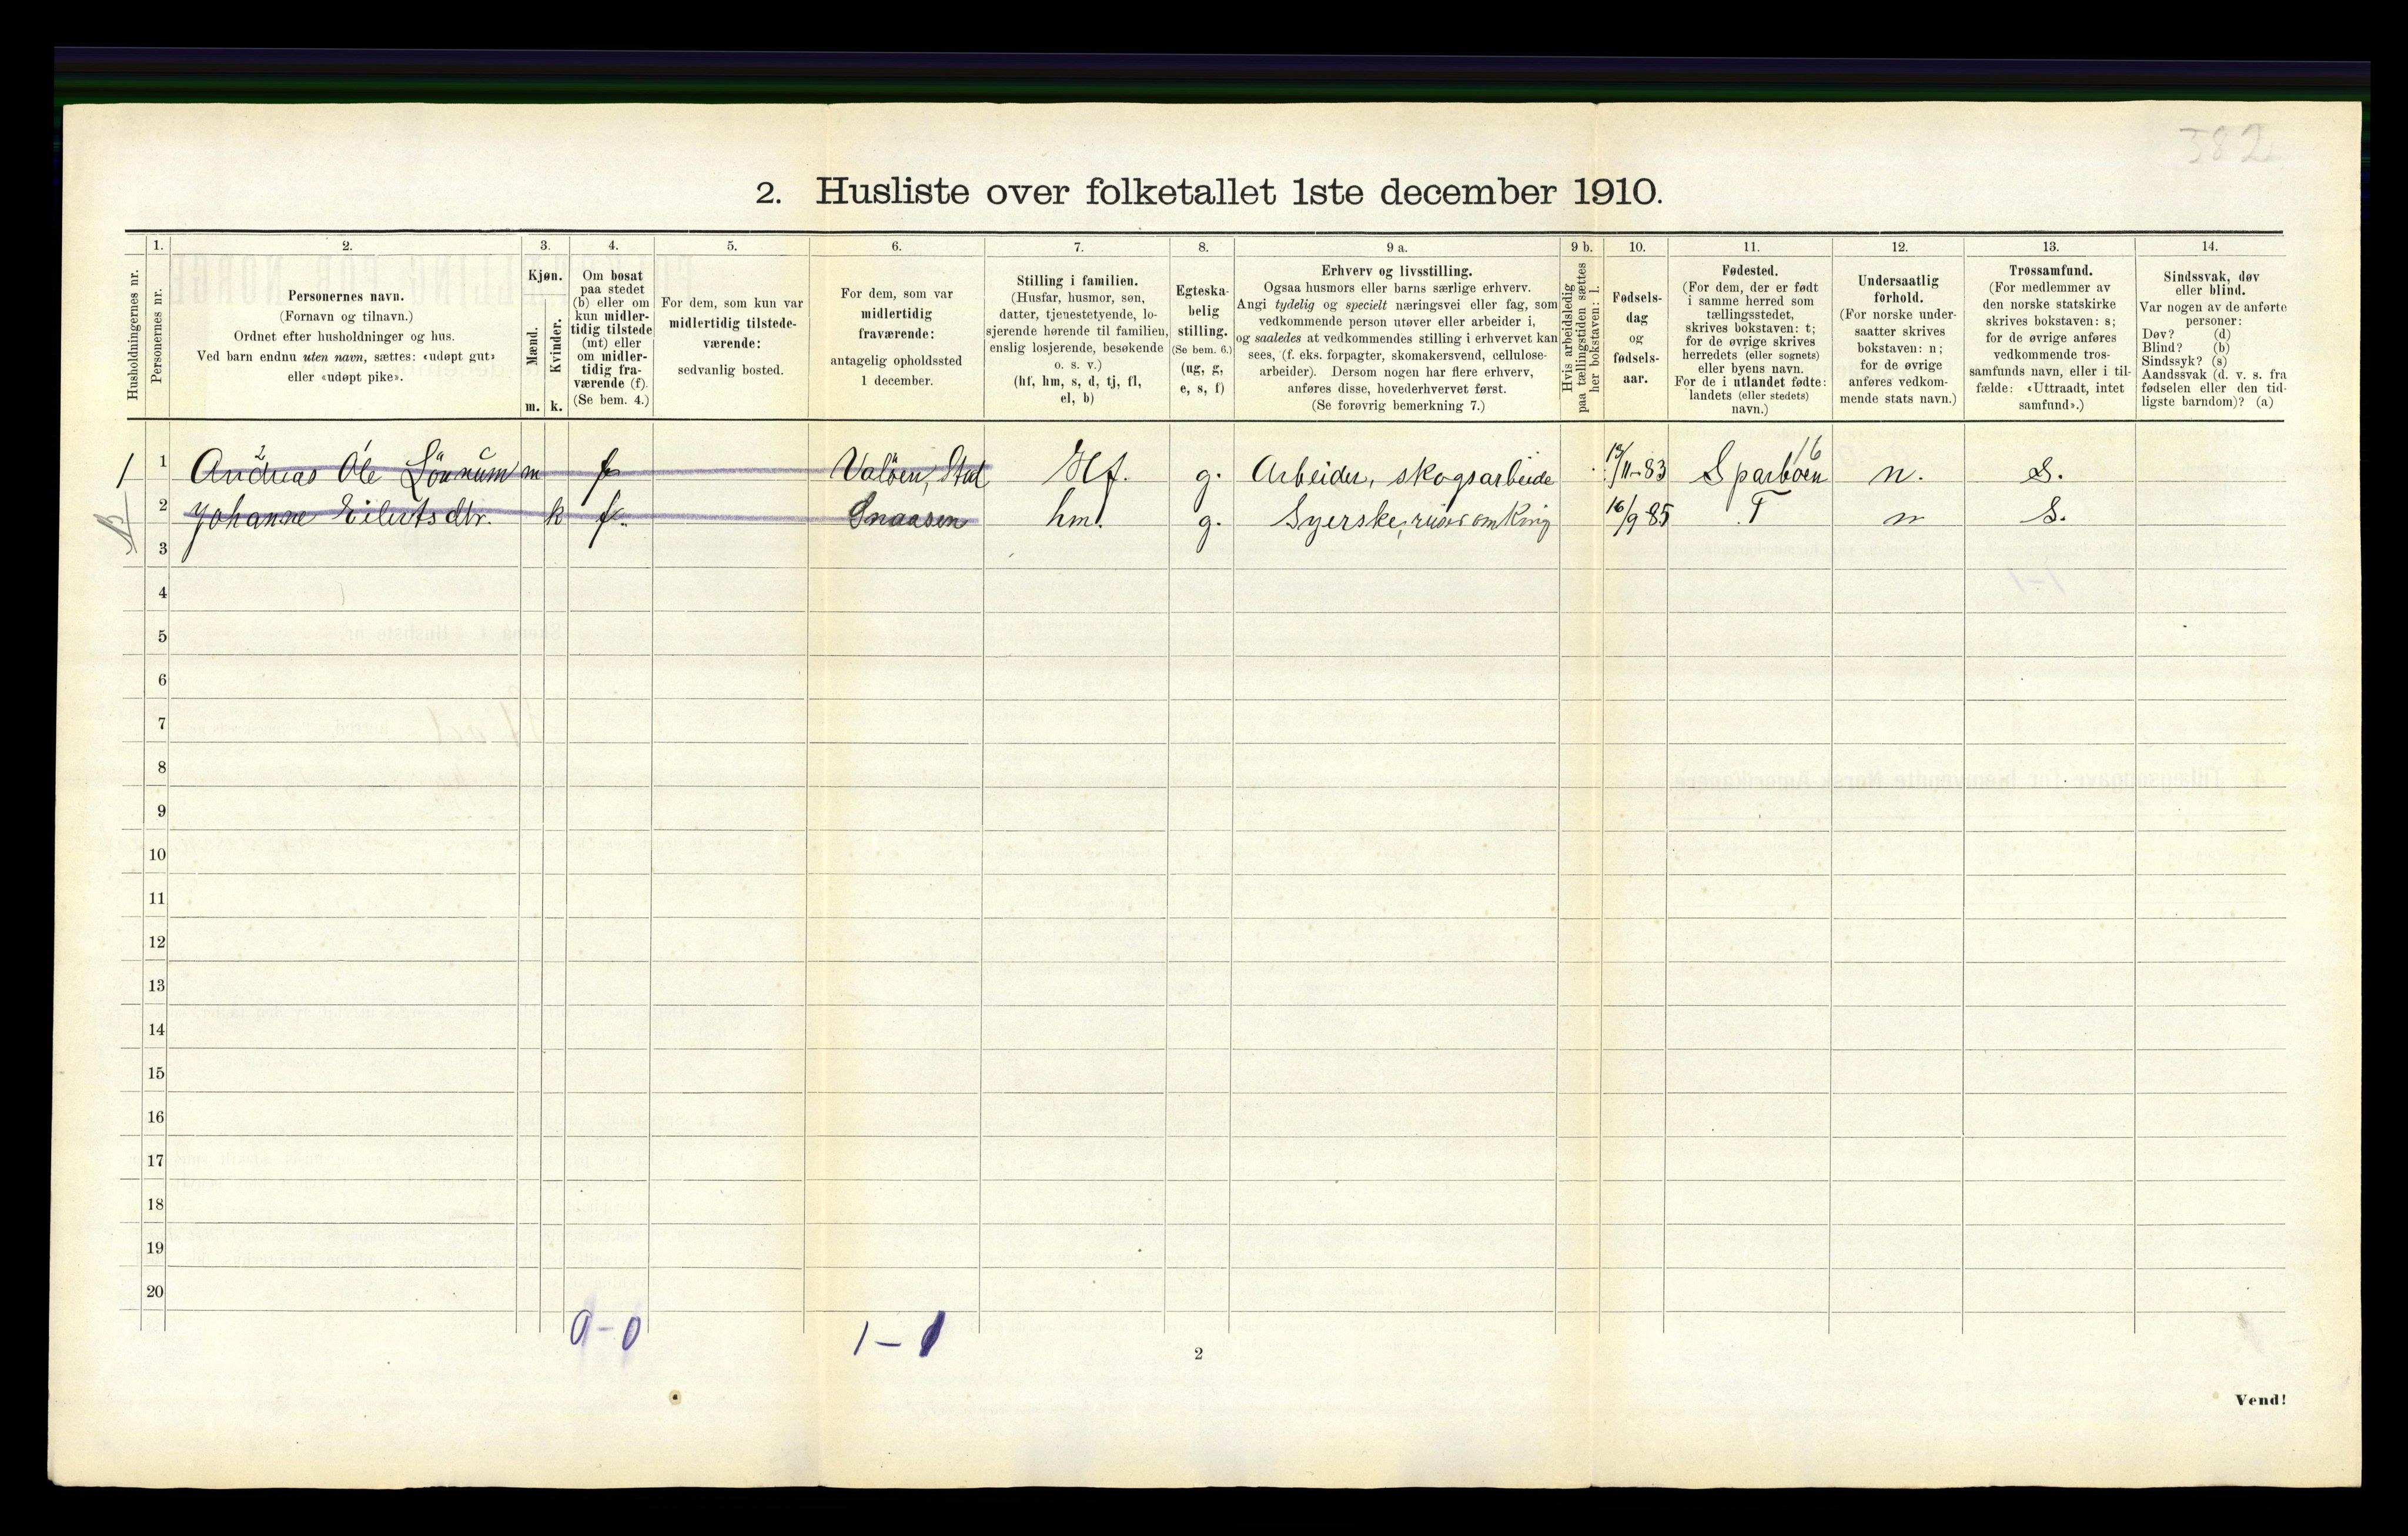 382
2. Husliste over folketallet 1ste december 1910.
Husholdningernes nr.
1.
Personernes nr.
2.
Personernes navn.
(Fornavn og tilnavn.)
Ordnet efter husholdninger og hus.
Ved barn endnu uten navn, sættes: «udøpt gut»
eller «udøpt pike».
3.
Kjøn.
Mænd.
Kvinder.
m. k.
4.
Om bosat
paa stedet
(b) eller om
kun midler-
tidig tilstede
(mt) eller
om midler-
tidig fra-
værende (f).
(Se bem. 4.)
5.
For dem, som kun var
midlertidig tilstede-
værende:
sedvanlig bosted.
6.
For dem, som var
midlertidig
fraværende:
antagelig opholdssted
1 december.
7.
Stilling i familien.
(Husfar, husmor, søn,
datter, tjenestetyende, lo-
sjerende hørende til familien,
enslig losjerende, besøkende
o. s. v.)
(hf, hm, s, d, tj, fl,
el, b)
8.
Egteska-
belig
stilling.
(Se bem. 6.)
(ug, g,
e, s, f)
9 a.
Erhverv og livsstilling.
Ogsaa husmors eller barns særlige erhverv.
Angi tydelig og specielt næringsvei eller fag, som
vedkommende person utøver eller arbeider i,
og saaledes at vedkommendes stilling i erhvervet kan
sees, (f. eks. forpagter, skomakersvend, cellulose-
arbeider). Dersom nogen har flere erhverv,
anføres disse, hovederhvervet først.
(Se forøvrig bemerkning 7.)
9 b.
Hvis arbeidsledig
paa tællingstiden sættes
her bokstaven: l.
10.
Fødsels-
dag
og
fødsels-
aar.
11.
Fødested.
(For dem, der er født
i samme herred som
tællingsstedet,
skrives bokstaven: t;
for de øvrige skrives
herredets (eller sognets)
eller byens navn.
For de i utlandet fødte:
landets (eller stedets)
navn.)
12.
Undersaatlig
forhold.
(For norske under-
saatter skrives
bokstaven: n;
for de øvrige
anføres vedkom-
mende stats navn.)
13.
Trossamfund.
(For medlemmer av
den norske statskirke
skrives bokstaven: s;
for de øvrige anføres
vedkommende tros-
samfunds navn, eller i til-
fælde: «Uttraadt, intet
samfund».)
14.
Sindssvak, døv
eller blind.
Var nogen av de anførte
personer:
Døv? (d)
Blind? (b)
Sindssyk? (s)
Aandssvak (d. v. s. fra
fødselen eller den tid-
ligste barndom)? (a)
16
1 1 Andreas Ole Lönnum m f Valöen, Stod Hf. g. Arbeider, skogsarbeide 13/11-83 Sparboen n. S.
2 Johanne Eilertsdtr. k f. Snaasen hm. g. Syerske, reiser omkring 16/9 85 T n S.
3
4
5
6
7
8
9
10
11
12
13
14
15
16
17
18
19
20
0-0
1-1
2
Vend!